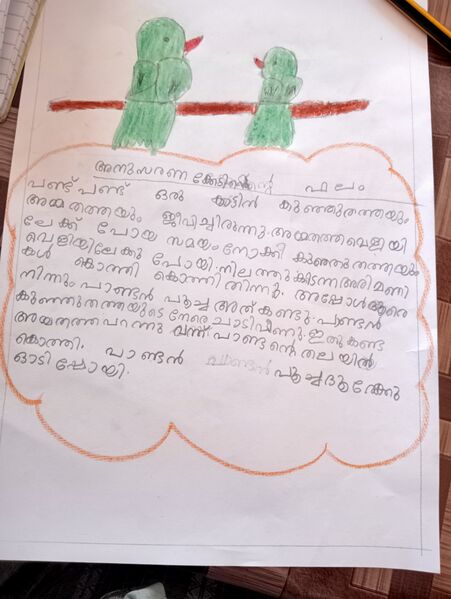 അനുസരണ ക്കേടിന്റെ ഫലം
പണ്ട് പണ്ട് ഒരു കാട്ടിൻ കുഞ്ഞുതത്തയും
അമ്മതത്തയും ജീവിച്ചിരുന്നു. അമ്മതത്ത വെളിയി
ലേക്ക് പോയ സമയം നോക്കി കുഞ്ഞുതത്തയും
വെളിയിലേക്കു പോയി. നിലത്തു കിടന്ന അരിമണി
കൾ കൊത്തി കൊത്തി തിന്നു. അപ്പോൾ ദൂരെ
നിന്നും പാണ്ടൻ പൂച്ച അത് കണ്ടു. പാണ്ടൻ
കുഞ്ഞുതത്തയുടെ നേരെ ചാടിവീണു. ഇതു കണ്ട
അമ്മതത്ത പറന്നു വന്ന് പാണ്ടന്റെ തലയിൽ
കൊത്തി. പാണ്ടൻ പൂച്ച ദൂരേക്കു
ഓടി പ്പോയി.